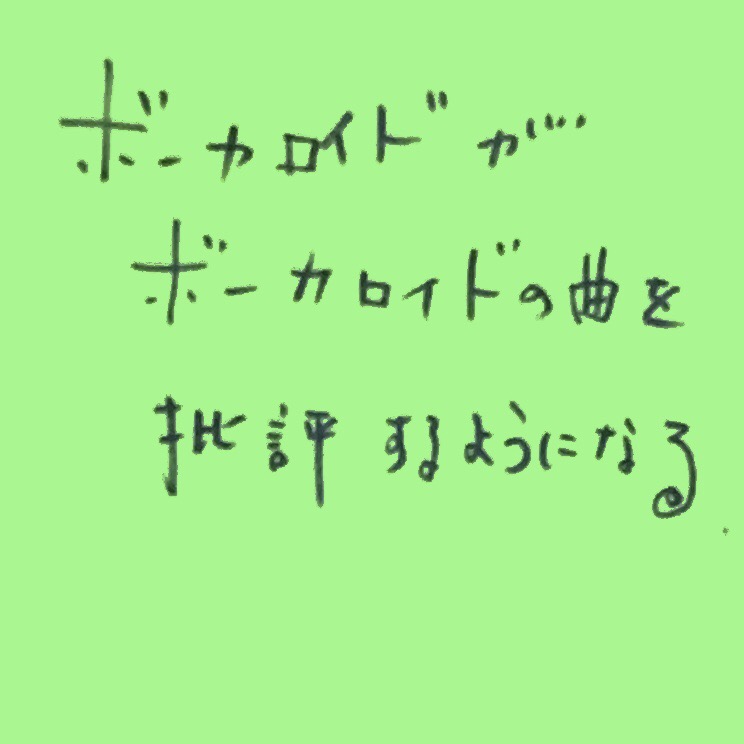 ボーカロイドが
ボーカロイドの曲を
批評するようになる